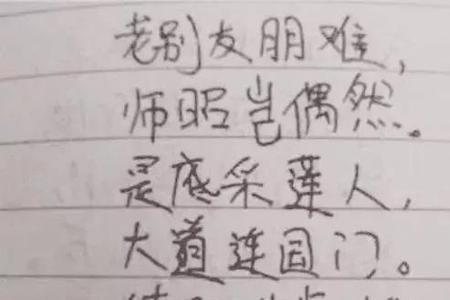 老别友朋难,
师昭岂偶然。
是底采莲人,
大道连国门。